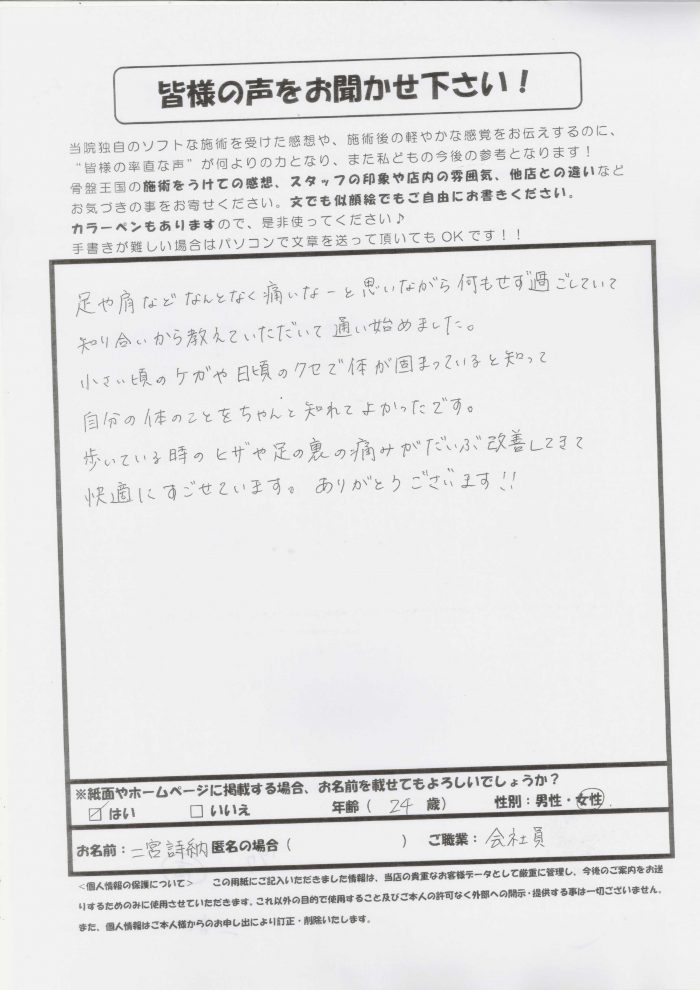 皆様の声をお聞かせ下さい！
当院独自のソフトな施術を受けた感想や、施術後の軽やかな感覚をお伝えするのに、
“皆様の率直な声”が何よりの力となり、また私どもの今後の参考となります！
骨盤王国の施術をうけての感想、スタッフの印象や店内の雰囲気、他店との違いなど
お気づきの事をお寄せください。文でも似顔絵でもご自由にお書きください。
カラーペンもありますので、是非使ってください♪
手書きが難しい場合はパソコンで文章を送って頂いてもOKです！！
足や肩など なんとなく痛いなーと思いながら何もせず過ごしていて
知り合いから教えていただいて通い始めました。
小さい頃のケガや日頃のクセで体が固まっていると知って
自分の体のことをちゃんと知れてよかったです。
歩いている時のヒザや足の裏の痛みがだいぶ改善してきて
快適にすごせています。ありがとうございます!!
※紙面やホームページに掲載する場合、お名前を載せてもよろしいでしょうか？
☑ はい □ いいえ 年齢（ 24 歳） 性別：男性・女性
お名前：二宮詩納 匿名の場合（ ） ご職業：会社員
＜個人情報の保護について＞ この用紙にご記入いただきました情報は、当店の貴重なお客様データとして厳重に管理し、今後のご案内をお送
りするためのみに使用させていただきます。これ以外の目的で使用すること及びご本人の許可なく外部への開示・提供する事は一切ございません。
また、個人情報はご本人様からのお申し出により訂正・削除いたします。